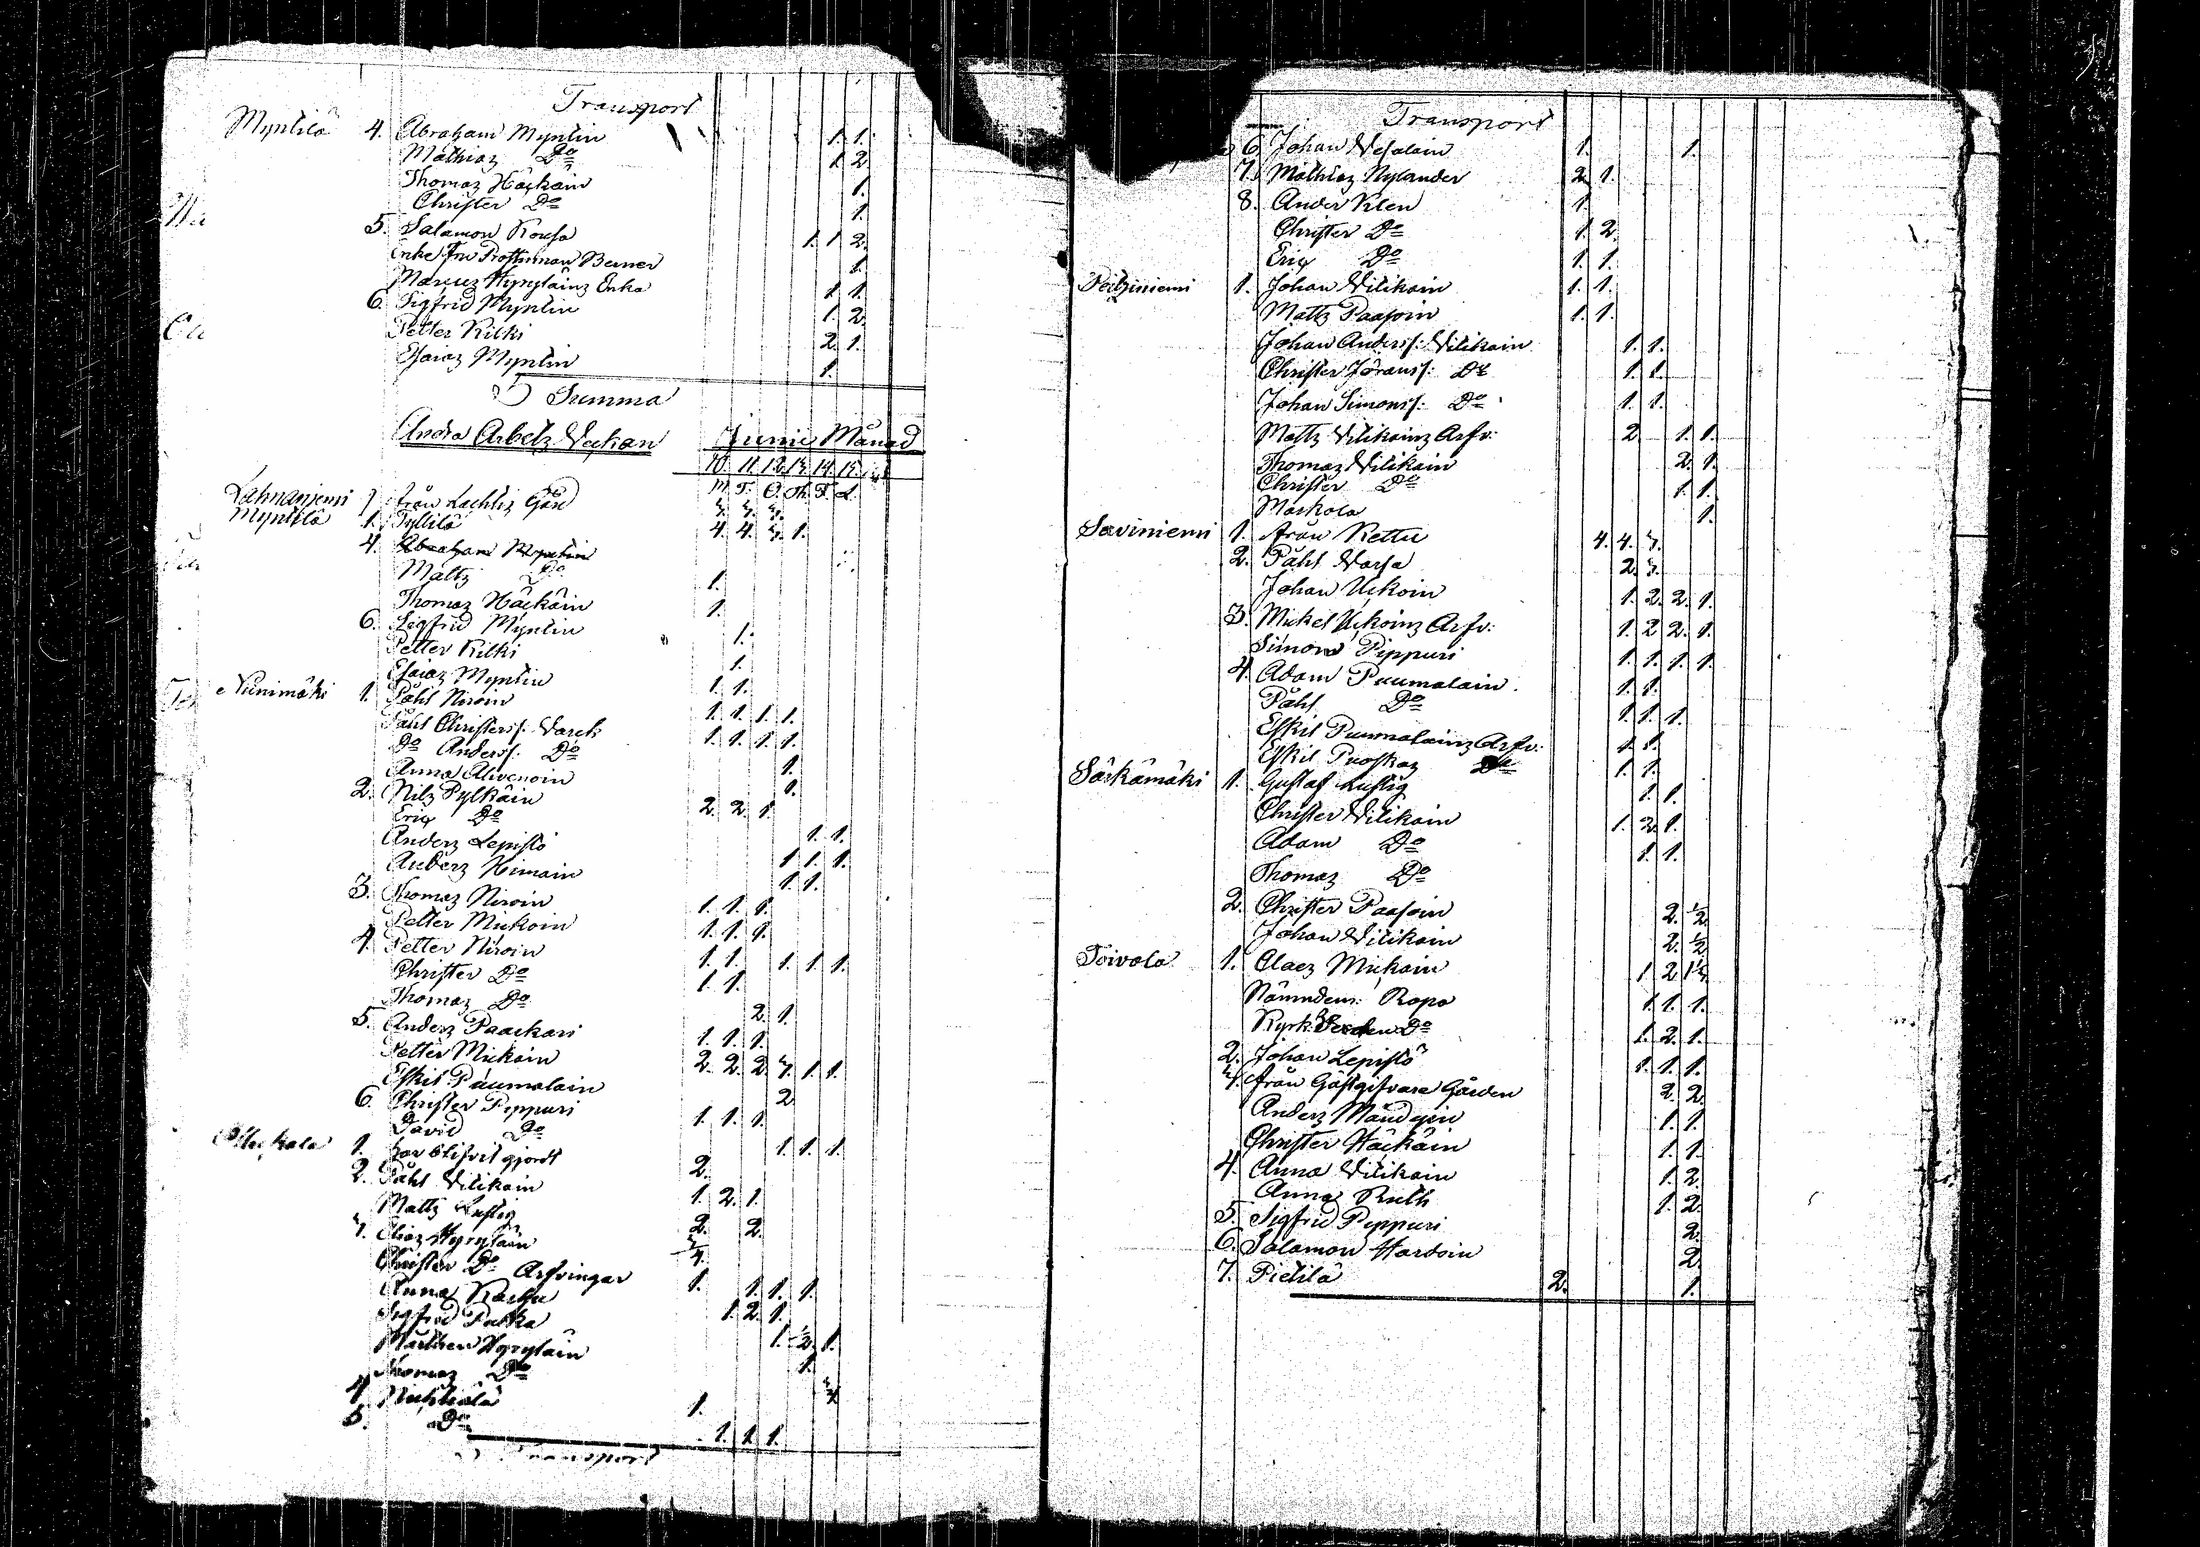 Transport
Myntilä 4. Abraham Myntin 1. 1.
Mathiaz Do 1. 2.
Thomaz Häckäin 1.
Christer Do 1.
5. Salamon Rousa 1. 1. 2.
Enke fru Prostinnan Berner 1.
Marcuz Hyrylainz Enka 1. 1.
6. Sigfrid Myntin 1. 2.
Petter Kilki 2. 1.
Esaiaz Myntin 1.
Summa
Andra Arbetz Veckan Junii Månad
10. 11. 12. 13. 14. 15.
M. T. O. Th. F. L.
Lahnaniemi 1 från Lachtis Gård 3. 3. 3.
Myntilä 1. Tyllilä 4. 4. 3. 1.
4. Abraham Myntin
Mattz Do 1.
Thomaz Häckäin 1.
6. Sigfrid Myntin 1.
Petter Kilki
Esaiaz Myntin 1.
Niinimäki 1. Påhl Niroin 1. 1.
Påhl Christerss: Varck 1. 1. 1. 1.
Do Anderss: Do 1. 1. 1. 1.
Anna Ahvenoin 1.
2. Nilz Pylkäin 1.
Eric Do 2. 2. 1.
Anderz Lepistö 1. 1.
Anderz Himain 1. 1. 1.
3. Thomaz Niroin 1. 1.
Petter Mickoin 1. 1. 1.
4. Petter Niroin 1. 1. 1.
Christer Do 1. 1. 1. 1. 1.
Thomaz Do 1. 1.
5. Anderz Paackari 2. 1.
Petter Mickoin 1. 1. 1.
Eskil Puumalain 2. 2. 2. 3. 1. 1.
6. Christer Pippuri 2.
David Do 1. 1. 1.
1. har blifvit gjordt 1. 1. 1.
2. Påhl Vilikain 2.
Mattz Lustig 1. 2. 1.
3. Eliaz Hyrylain 2. 2.
Christer Do Arfvingar
Anna Karhu 1. 1. 1. 1.
Sigfrid Pulka 1. 2. 1.
Mårthen Hyrylain 1. ½. 1.
Thomaz Do 1.
4.
5. Do 1. 1. 1.
Transport
Transport
6. Johan Vesalain 1. 1.
7. Mathiaz Nylander 2. 1.
8. Ander Klen 1.
Christer Do 1. 2.
Eric Do 1. 1.
1. Johan Vilikain 1. 1.
Mattz Paasoin 1. 1.
Johan Anderss: Vilikain 1. 1.
Christer Jöranss: Do 1. 1.
Johan Simonss: Do 1. 1.
Mattz Vilikainz Arfv: 2. 1. 1.
Thomaz Vilikain 2. 1.
Christer Do 1. 1.
Maskola 1.
Saviniemi 1. från Kettu 4. 4. 3.
2. Påhl Varsa 2. 3.
Johan Uckoin 1. 2. 2. 1.
3. Mickel Uckoinz Arfv: 1. 2. 2. 1.
Simon Pippuri 1. 1. 1. 1.
4. Adam Puumalain 1. 1.
Påhl Do 1. 1. 1.
Eskil Puumalainz Arfv: 1. 1.
Eskil Do 1. 1.
Särkämäki 1. Gustaf Lustig 1. 1.
Christer Vilikain 1. 2. 1.
Adam Do 1. 1.
Thomaz Do
2. Christer Paasoin 2. ½
Johan Vilikain 2. ½
Toivola 1. Claez Mickoin 1. 2. 1½
Nämndem: Ropo 1. 1. 1.
Kyrk Do 1. 2. 1.
2. Johan Lepistö 1. 1. 1.
3. från Gästgifvare Gården 2. 2.
Anderz Mändyin 1. 1.
Christer Häckäin 1. 1.
4. Anna Vilikain 1. 2.
Anna Ruth 1. 2.
5. Sigfrid Pippuri 2.
6. Salamon Hardoin 2.
7. Pietilä 2. 1.